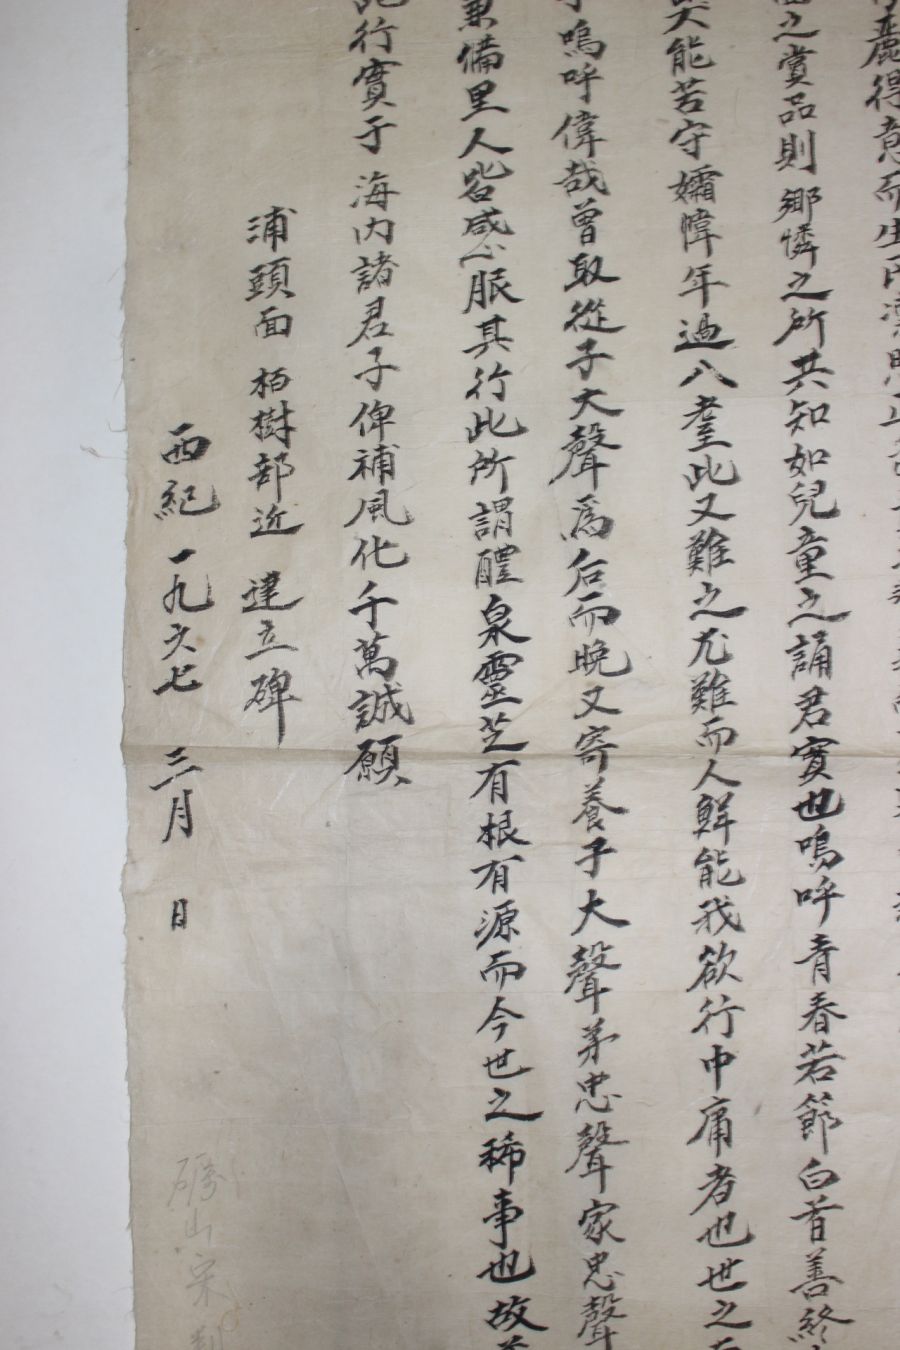 麗得意而生
之賞品則鄉憐之所共知如兒童之誦君實也嗚呼青春若節白首善終
能苦守孀幃年過八耋此又難之尤難而人鮮能我欲行中庸者也世之
嗚呼偉哉曾取從子大聲爲后而晚又寄養子大聲弟忠聲家忠聲
兼備里人皆咸心服其行此所謂醴泉靈芝有根有源而今世之稀事也故
行實于海內諸君子俾補風化千萬誠願
浦頭面 栢樹部近 建立碑
西紀一九六七 三月 日
礪山宋